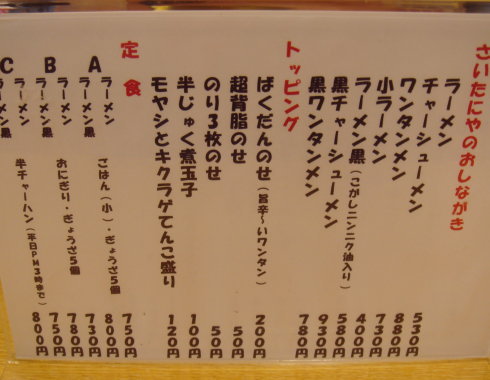 さいたにやのおしながき
ラーメン 530円
チャーシューメン 880円
ワンタンメン 730円
小ラーメン 400円
ラーメン黒(こがしニンニク油入り) 580円
黒チャーシューメン 930円
黒ワンタンメン 780円
トッピング
ばくだんのせ(旨辛〜いワンタン) 200円
超背脂のせ 50円
のり3枚のせ 50円
半じゅく煮玉子 100円
モヤシとキクラゲてんこ盛り 120円
定食
A
ラーメン 750円
ごはん(小)・ぎょうざ5個
ラーメン黒 800円
B
ラーメン 730円
おにぎり・ぎょうざ5個
ラーメン黒 780円
C
ラーメン 750円
半チャーハン(平日PM3時まで)
ラーメン黒 800円